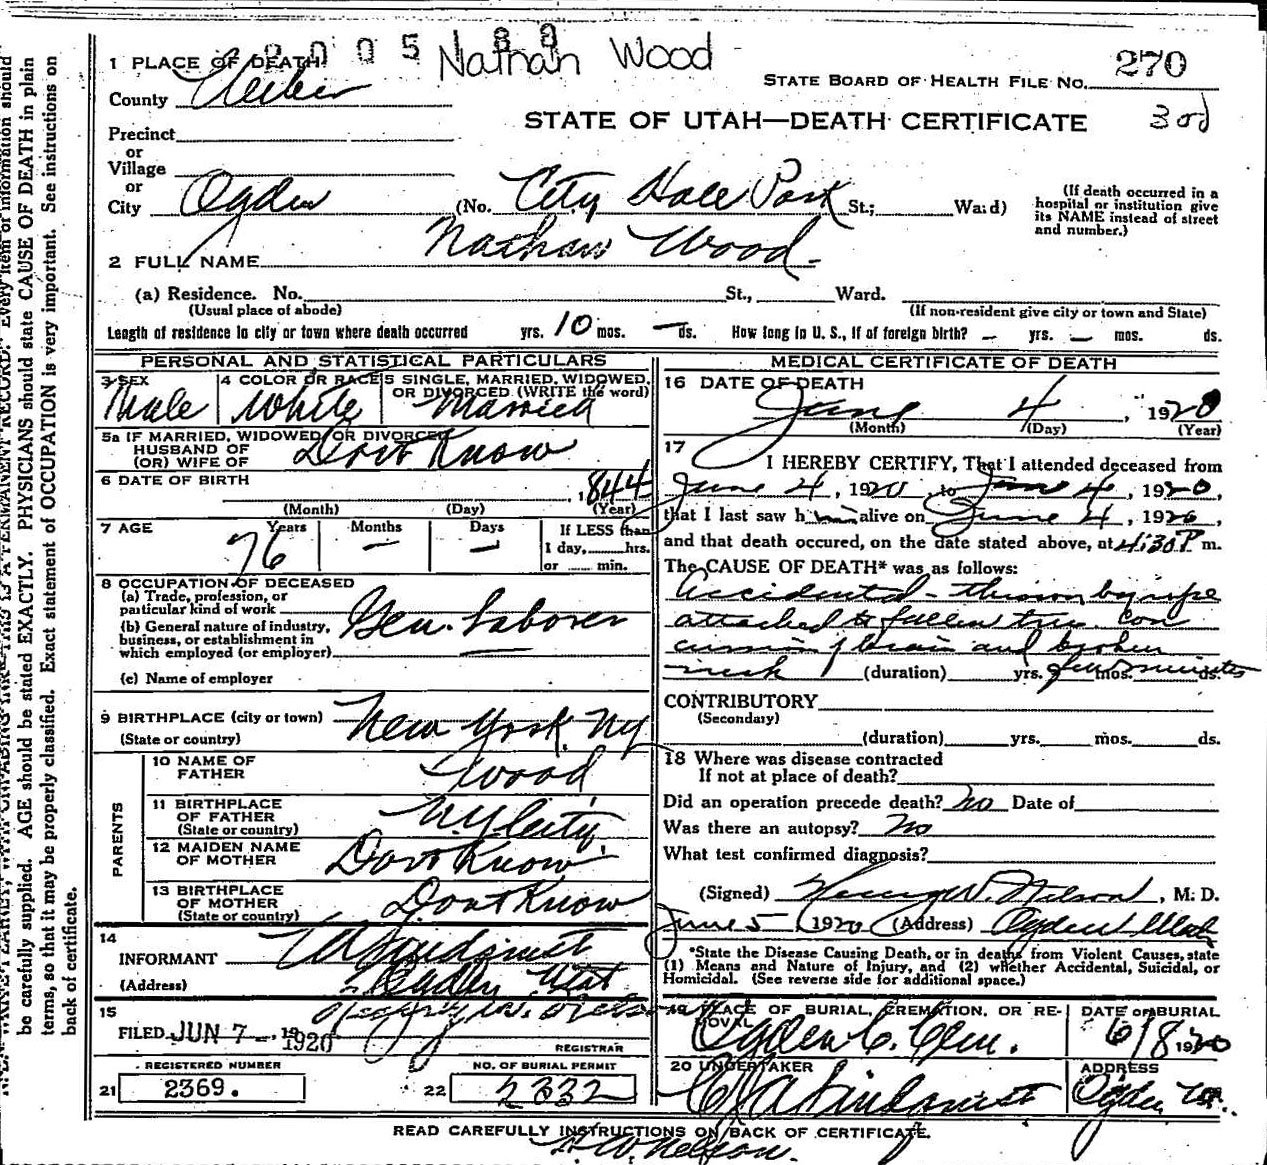 2 0 0 5 8 8
Nathan Wood
270
1 PLACE OF DEATH
STATE BOARD OF HEALTH FILE NO.
County Weber
STATE OF UTAH—DEATH CERTIFICATE
Precinct
or
Village
or
City Ogden (No. City Hall Park St.; Ward)
(If death occurred in a
hospital or institution give
its NAME instead of street
and number.)
2 FULL NAME Nathan Wood
(a) Residence. No. St., Ward.
(Usual place of abode) (If non-resident give city or town and State)
Length of residence in city or town where death occurred yrs. 10 mos. — ds. How long in U. S., if of foreign birth? — yrs. — mos. ds.
PERSONAL AND STATISTICAL PARTICULARS
3 SEX
Male
4 COLOR OR RACE
White
5 SINGLE, MARRIED, WIDOWED,
OR DIVORCED (WRITE the word)
Married
5a IF MARRIED, WIDOWED, OR DIVORCED
HUSBAND OF
(OR) WIFE OF
Dont Know
6 DATE OF BIRTH
, 1844
(Month) (Day) (Year)
7 AGE
Years Months Days
76 — —
If LESS than
1 day, hrs.
or min.
8 OCCUPATION OF DECEASED
(a) Trade, profession, or
particular kind of work
Gen. Laborer
(b) General nature of industry,
business, or establishment in
which employed (or employer)
(c) Name of employer
9 BIRTHPLACE (city or town) New York, NY
(State or country)
PARENTS
10 NAME OF
FATHER
Wood
11 BIRTHPLACE
OF FATHER
(State or country)
N.Y. City
12 MAIDEN NAME
OF MOTHER
Dont Know
13 BIRTHPLACE
OF MOTHER
(State or country)
Dont Know
14
INFORMANT
(Address)
15
FILED JUN 7 —, 1920
REGISTRAR
REGISTERED NUMBER
21 2369.
NO. OF BURIAL PERMIT
22 2332
MEDICAL CERTIFICATE OF DEATH
16 DATE OF DEATH
June 4, 1920
(Month) (Day) (Year)
17
I HEREBY CERTIFY, That I attended deceased from
June 4, 1920, to June 4, 1920,
that I last saw him alive on June 4, 1920,
and that death occured, on the date stated above, at 4:30 P. m.
The CAUSE OF DEATH* was as follows:
Accidental - thrown by rope
attached to fallen tree. Con
cussion of brain and broken
neck (duration) yrs. few mos. minutes ds.
CONTRIBUTORY
(Secondary)
(duration) yrs. mos. ds.
18 Where was disease contracted
If not at place of death?
Did an operation precede death? No Date of
Was there an autopsy? No
What test confirmed diagnosis?
(Signed) W. Nelson, M. D.
June 5, 1920 (Address) Ogden Utah
*State the Disease Causing Death, or in deaths from Violent Causes, state
(1) Means and Nature of Injury, and (2) whether Accidental, Suicidal, or
Homicidal. (See reverse side for additional space.)
19 PLACE OF BURIAL, CREMATION, OR RE-
MOVAL
Ogden C. Cem.
DATE OF BURIAL
6/8 1920
20 UNDERTAKER
ADDRESS
Ogden
READ CAREFULLY INSTRUCTIONS ON BACK OF CERTIFICATE.
W. Nelson.
be carefully supplied. AGE should be stated EXACTLY. PHYSICIANS should state CAUSE OF DEATH in plain
terms, so that it may be properly classified. Exact statement of OCCUPATION is very important. See instructions on
back of certificate.